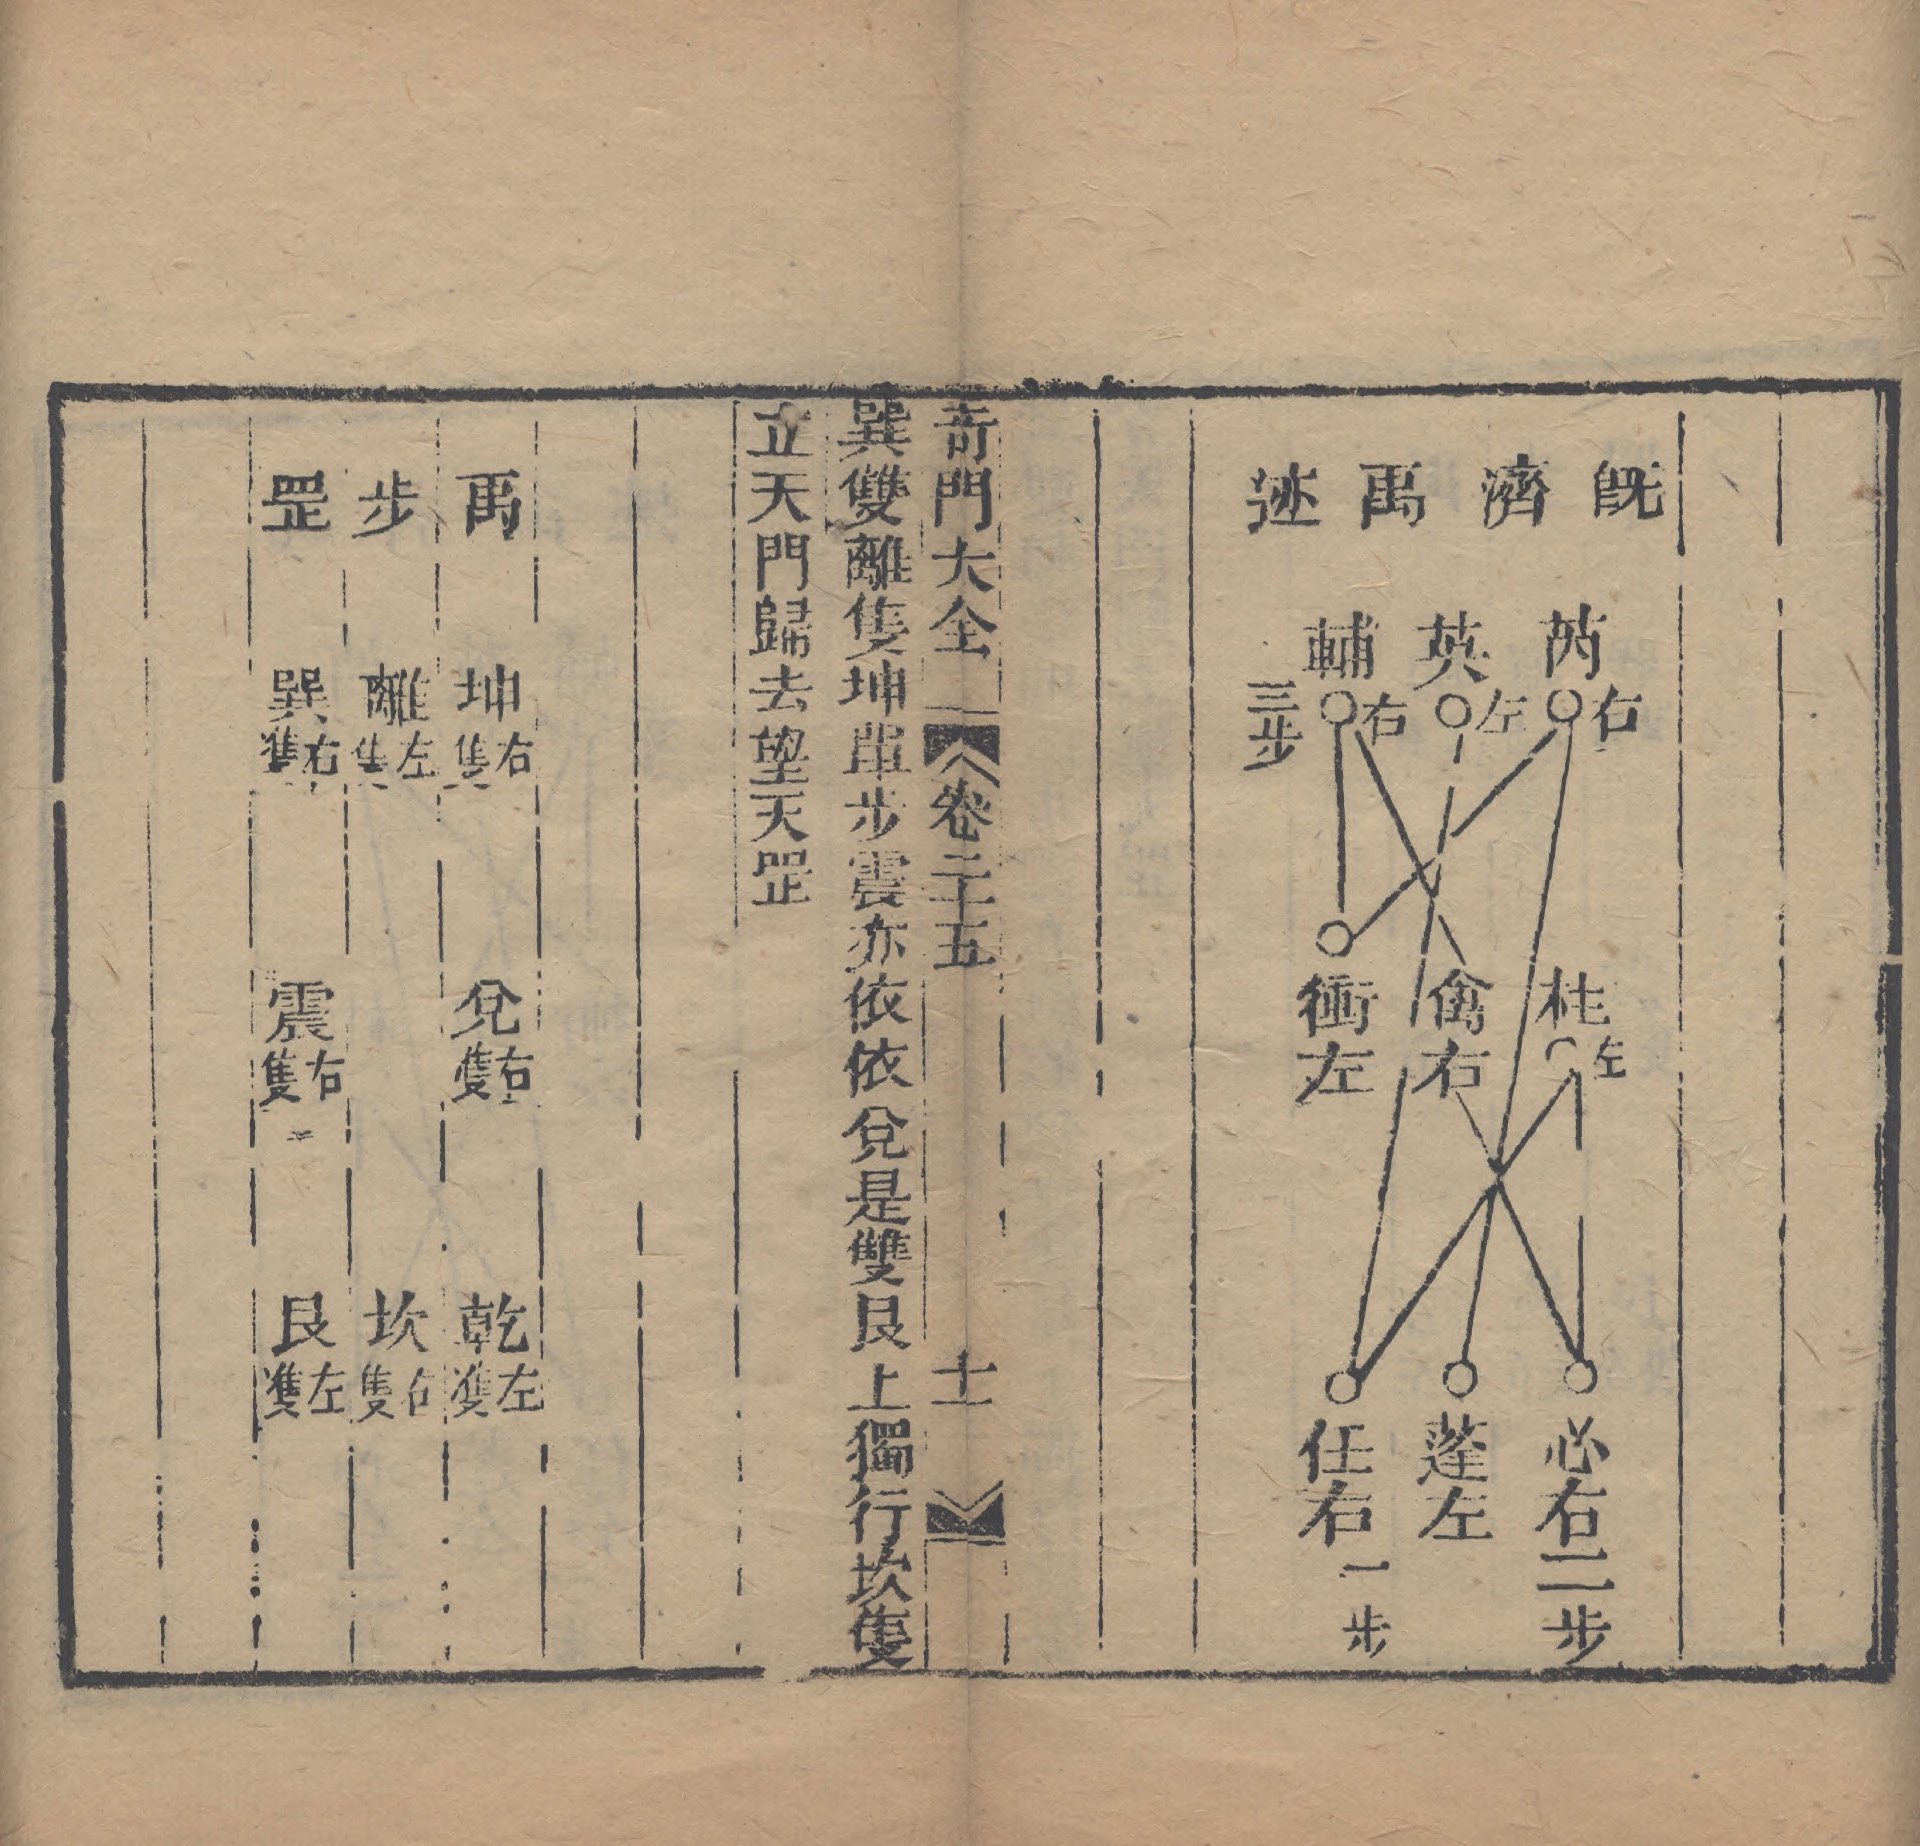 既濟禹迹
芮右 英左 輔右 三步
柱左 禽右 衝左
必右二步 蓬左 任右一步
奇門大全 卷二十五 十一
巽雙離隻坤單步震亦依依兌是雙艮上獨行坎隻
立天門歸去望天罡
禹步罡
坤右隻 離左隻 巽右隻
兌右隻 震右隻
乾左隻 坎右隻 艮左隻